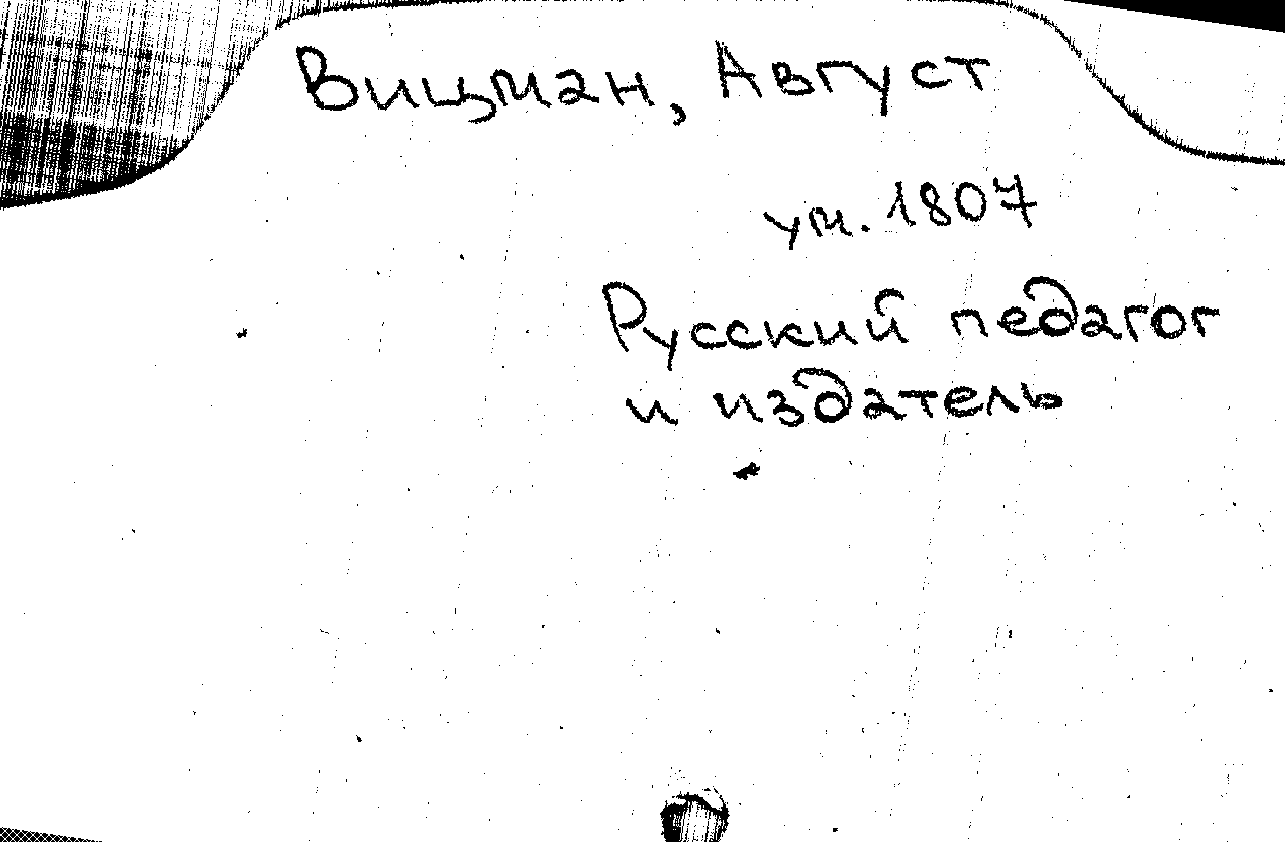 Вицман, Август
ум. 1807
Русский педагог
и издатель